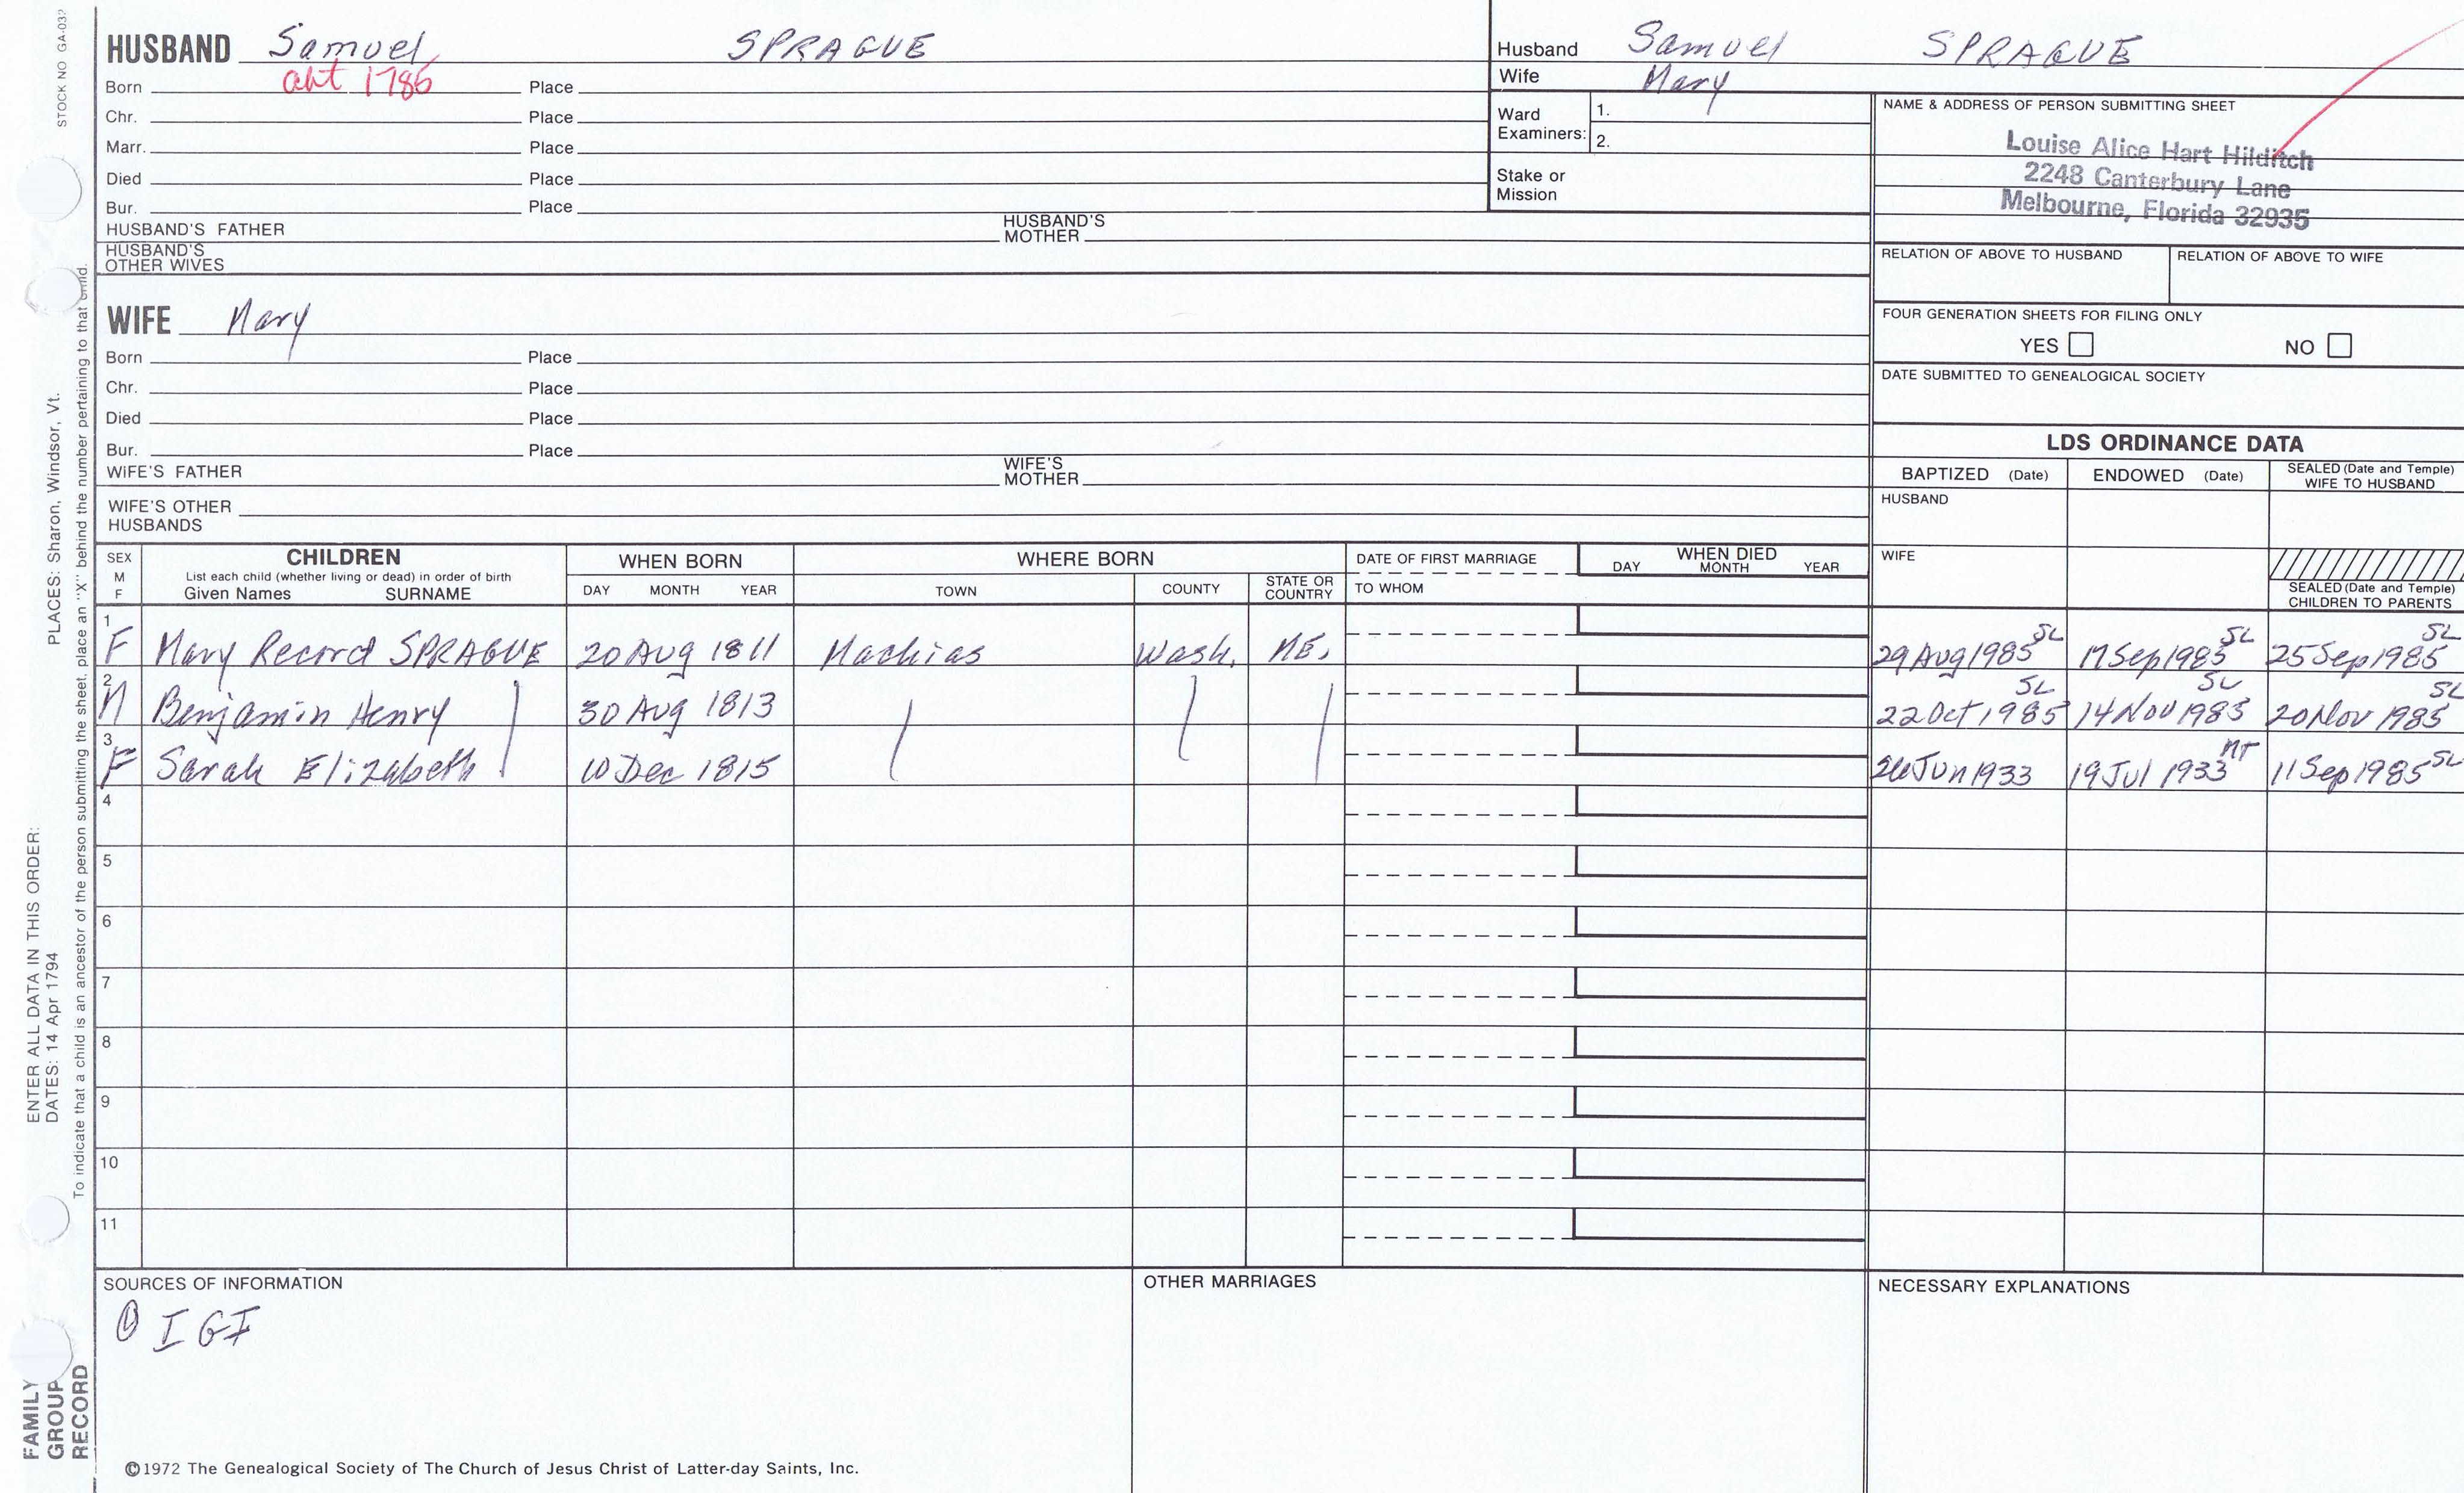 STOCK NO GA-032
HUSBAND Samuel SPRAGUE
Born abt 1786 Place
Chr. Place
Marr. Place
Died Place
Bur. Place
HUSBAND'S FATHER HUSBAND'S MOTHER
HUSBAND'S OTHER WIVES
Husband Samuel SPRAGUE
Wife Mary
Ward Examiners: 1.
2.
Stake or Mission
NAME & ADDRESS OF PERSON SUBMITTING SHEET
Louise Alice Hart Hilditch
2248 Canterbury Lane
Melbourne, Florida 32935
RELATION OF ABOVE TO HUSBAND RELATION OF ABOVE TO WIFE
FOUR GENERATION SHEETS FOR FILING ONLY
YES NO
DATE SUBMITTED TO GENEALOGICAL SOCIETY
WIFE Mary
Born Place
Chr. Place
Died Place
Bur. Place
WIFE'S FATHER WIFE'S MOTHER
WIFE'S OTHER HUSBANDS
LDS ORDINANCE DATA
BAPTIZED (Date) ENDOWED (Date) SEALED (Date and Temple) WIFE TO HUSBAND
HUSBAND
WIFE
SEALED (Date and Temple) CHILDREN TO PARENTS
SEX M F
CHILDREN
List each child (whether living or dead) in order of birth
Given Names SURNAME
WHEN BORN
DAY MONTH YEAR
WHERE BORN
TOWN COUNTY STATE OR COUNTRY
DATE OF FIRST MARRIAGE
TO WHOM
WHEN DIED
DAY MONTH YEAR
1 F Mary Record SPRAGUE 20 Aug 1811 Machias Wash. ME. 29 Aug 1985 SL 17 Sep 1985 SL 25 Sep 1985 SL
2 M Benjamin Henry 30 Aug 1813 22 Oct 1985 SL 14 Nov 1985 SL 20 Nov 1985 SL
3 F Sarah Elizabeth 10 Dec 1815 Jun 1933 19 Jul 1933 MT 11 Sep 1985 SL
4
5
6
7
8
9
10
11
SOURCES OF INFORMATION
① IGI
OTHER MARRIAGES
NECESSARY EXPLANATIONS
©1972 The Genealogical Society of The Church of Jesus Christ of Latter-day Saints, Inc.
FAMILY GROUP RECORD
ENTER ALL DATA IN THIS ORDER:
DATES: 14 Apr 1794 PLACES: Sharon, Windsor, Vt.
To indicate that a child is an ancestor of the person submitting the sheet, place an "X" behind the number pertaining to that child.